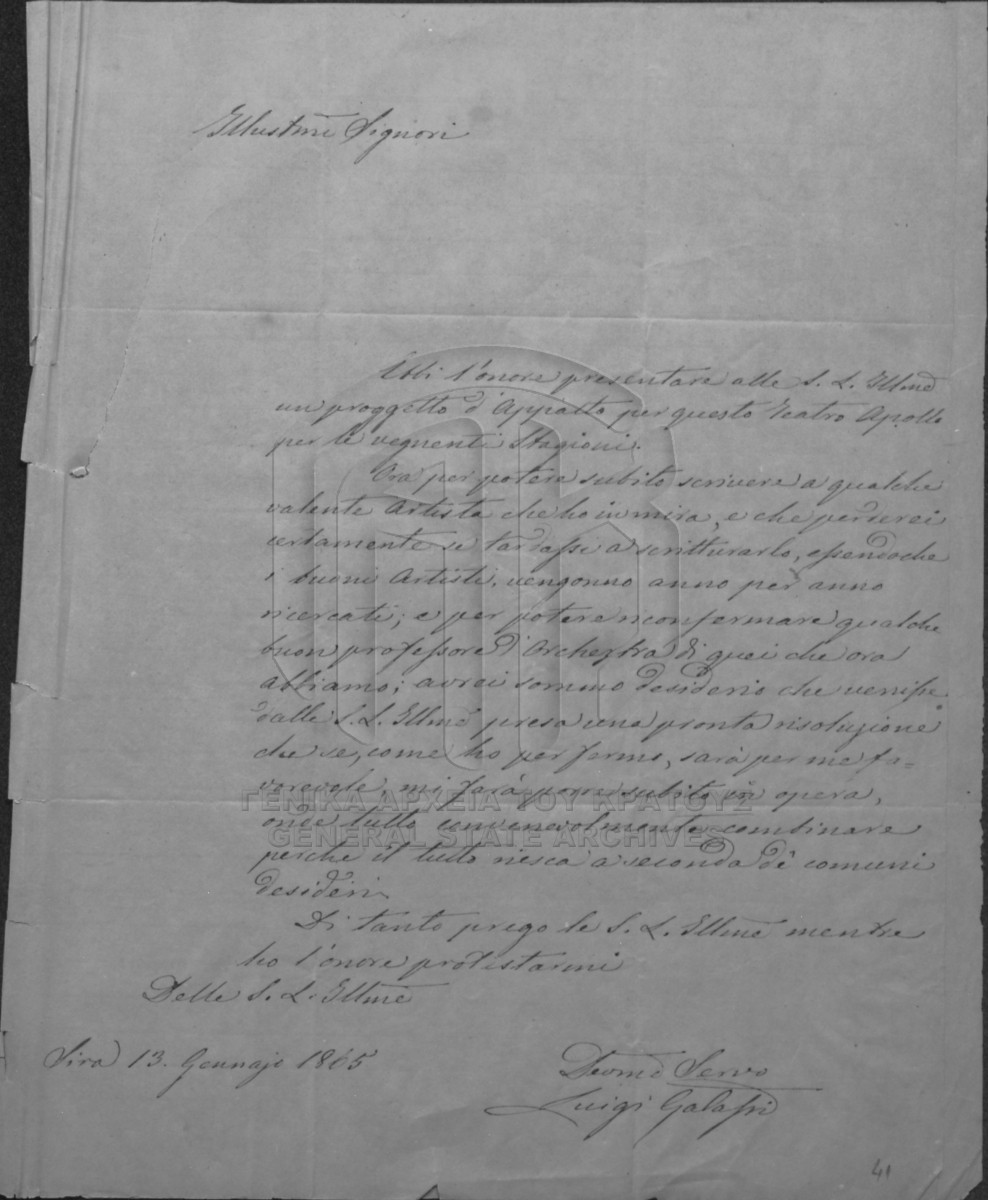 Illustmi Signori
Ebbi l'onore presentare alle S. L. Illme
un proggetto d'Appalto per questo Teatro Apollo
per le vegnenti Stagioni.
Ora per potere subito scrivere a qualche
valente Artista che ho in mira, e che perderei
certamente se tardassi a scritturarlo, essendoche
i buoni Artisti, vengonno anno per anno
ricercati; e per potere riconfermare qualche
buon professore d'Orchestra di quei che ora
abbiamo; avrei sommo desiderio che venisse
dalle S. L. Illme presa una pronta risoluzione
che se, come ho per fermo, sarà per me fa=
vorevole, mi farà porre subito in opera,
onde tutto convenevolmente combinare
perche il tutto riesca a seconda dè comuni
desidèri
Di tanto prego le S. L. Illme mentre
ho l'onore protestarmi
Delle S. L. Illme
Sira 13. Gennajo 1865
Devomo Servo
Luigi Galassi
41
ΓΕΝΙΚΑ ΑΡΧΕΙΑ ΤΟΥ ΚΡΑΤΟΥΣ
GENERAL STATE ARCHIVES